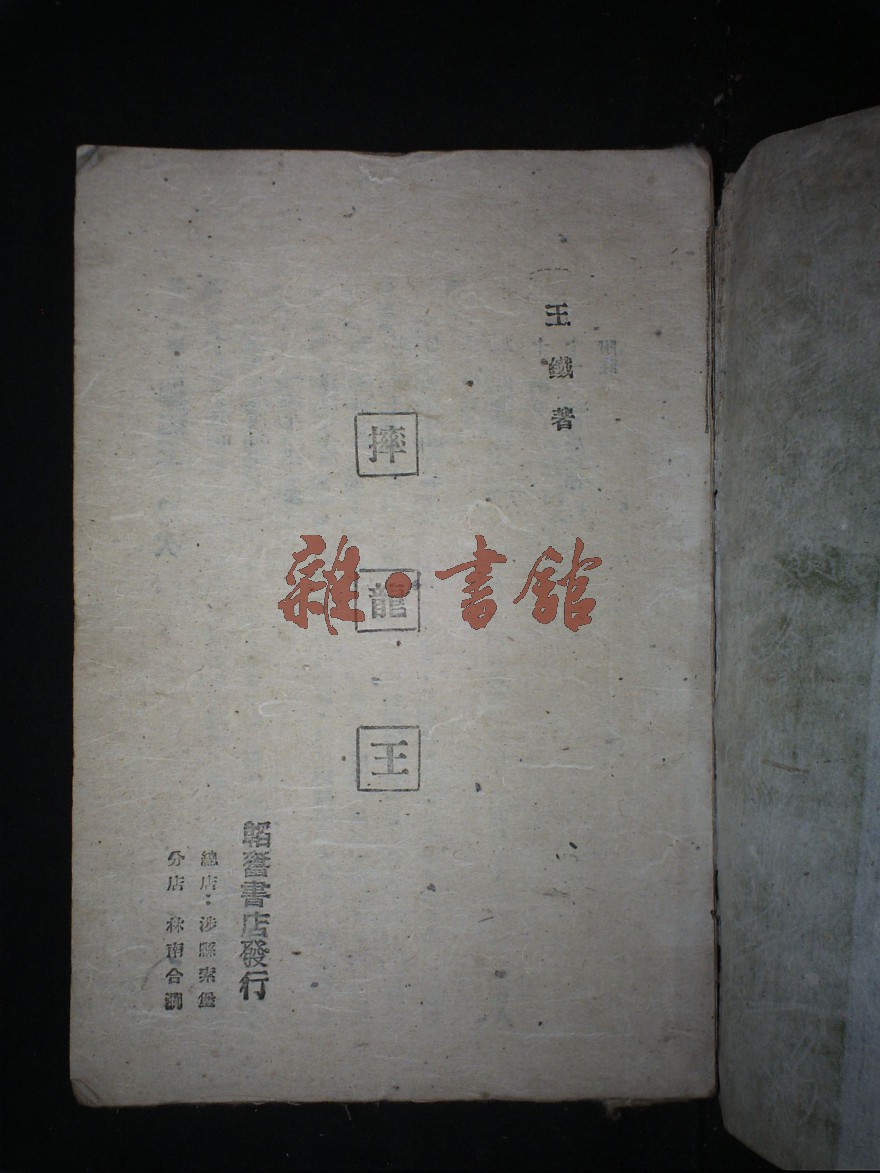 王鐵著
摔龍王
韜奮書店發行
總店：涉縣索堡
分店 林南合澗
雜·書館